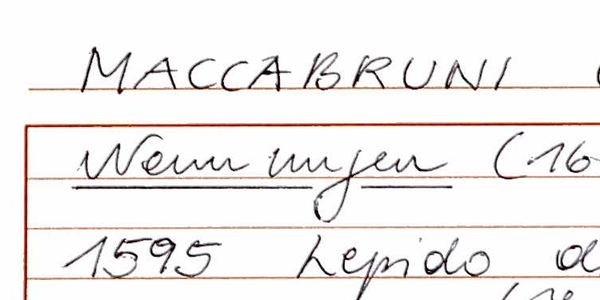 MACCABRUNI (
Nennungen (16
1595 Lepido d